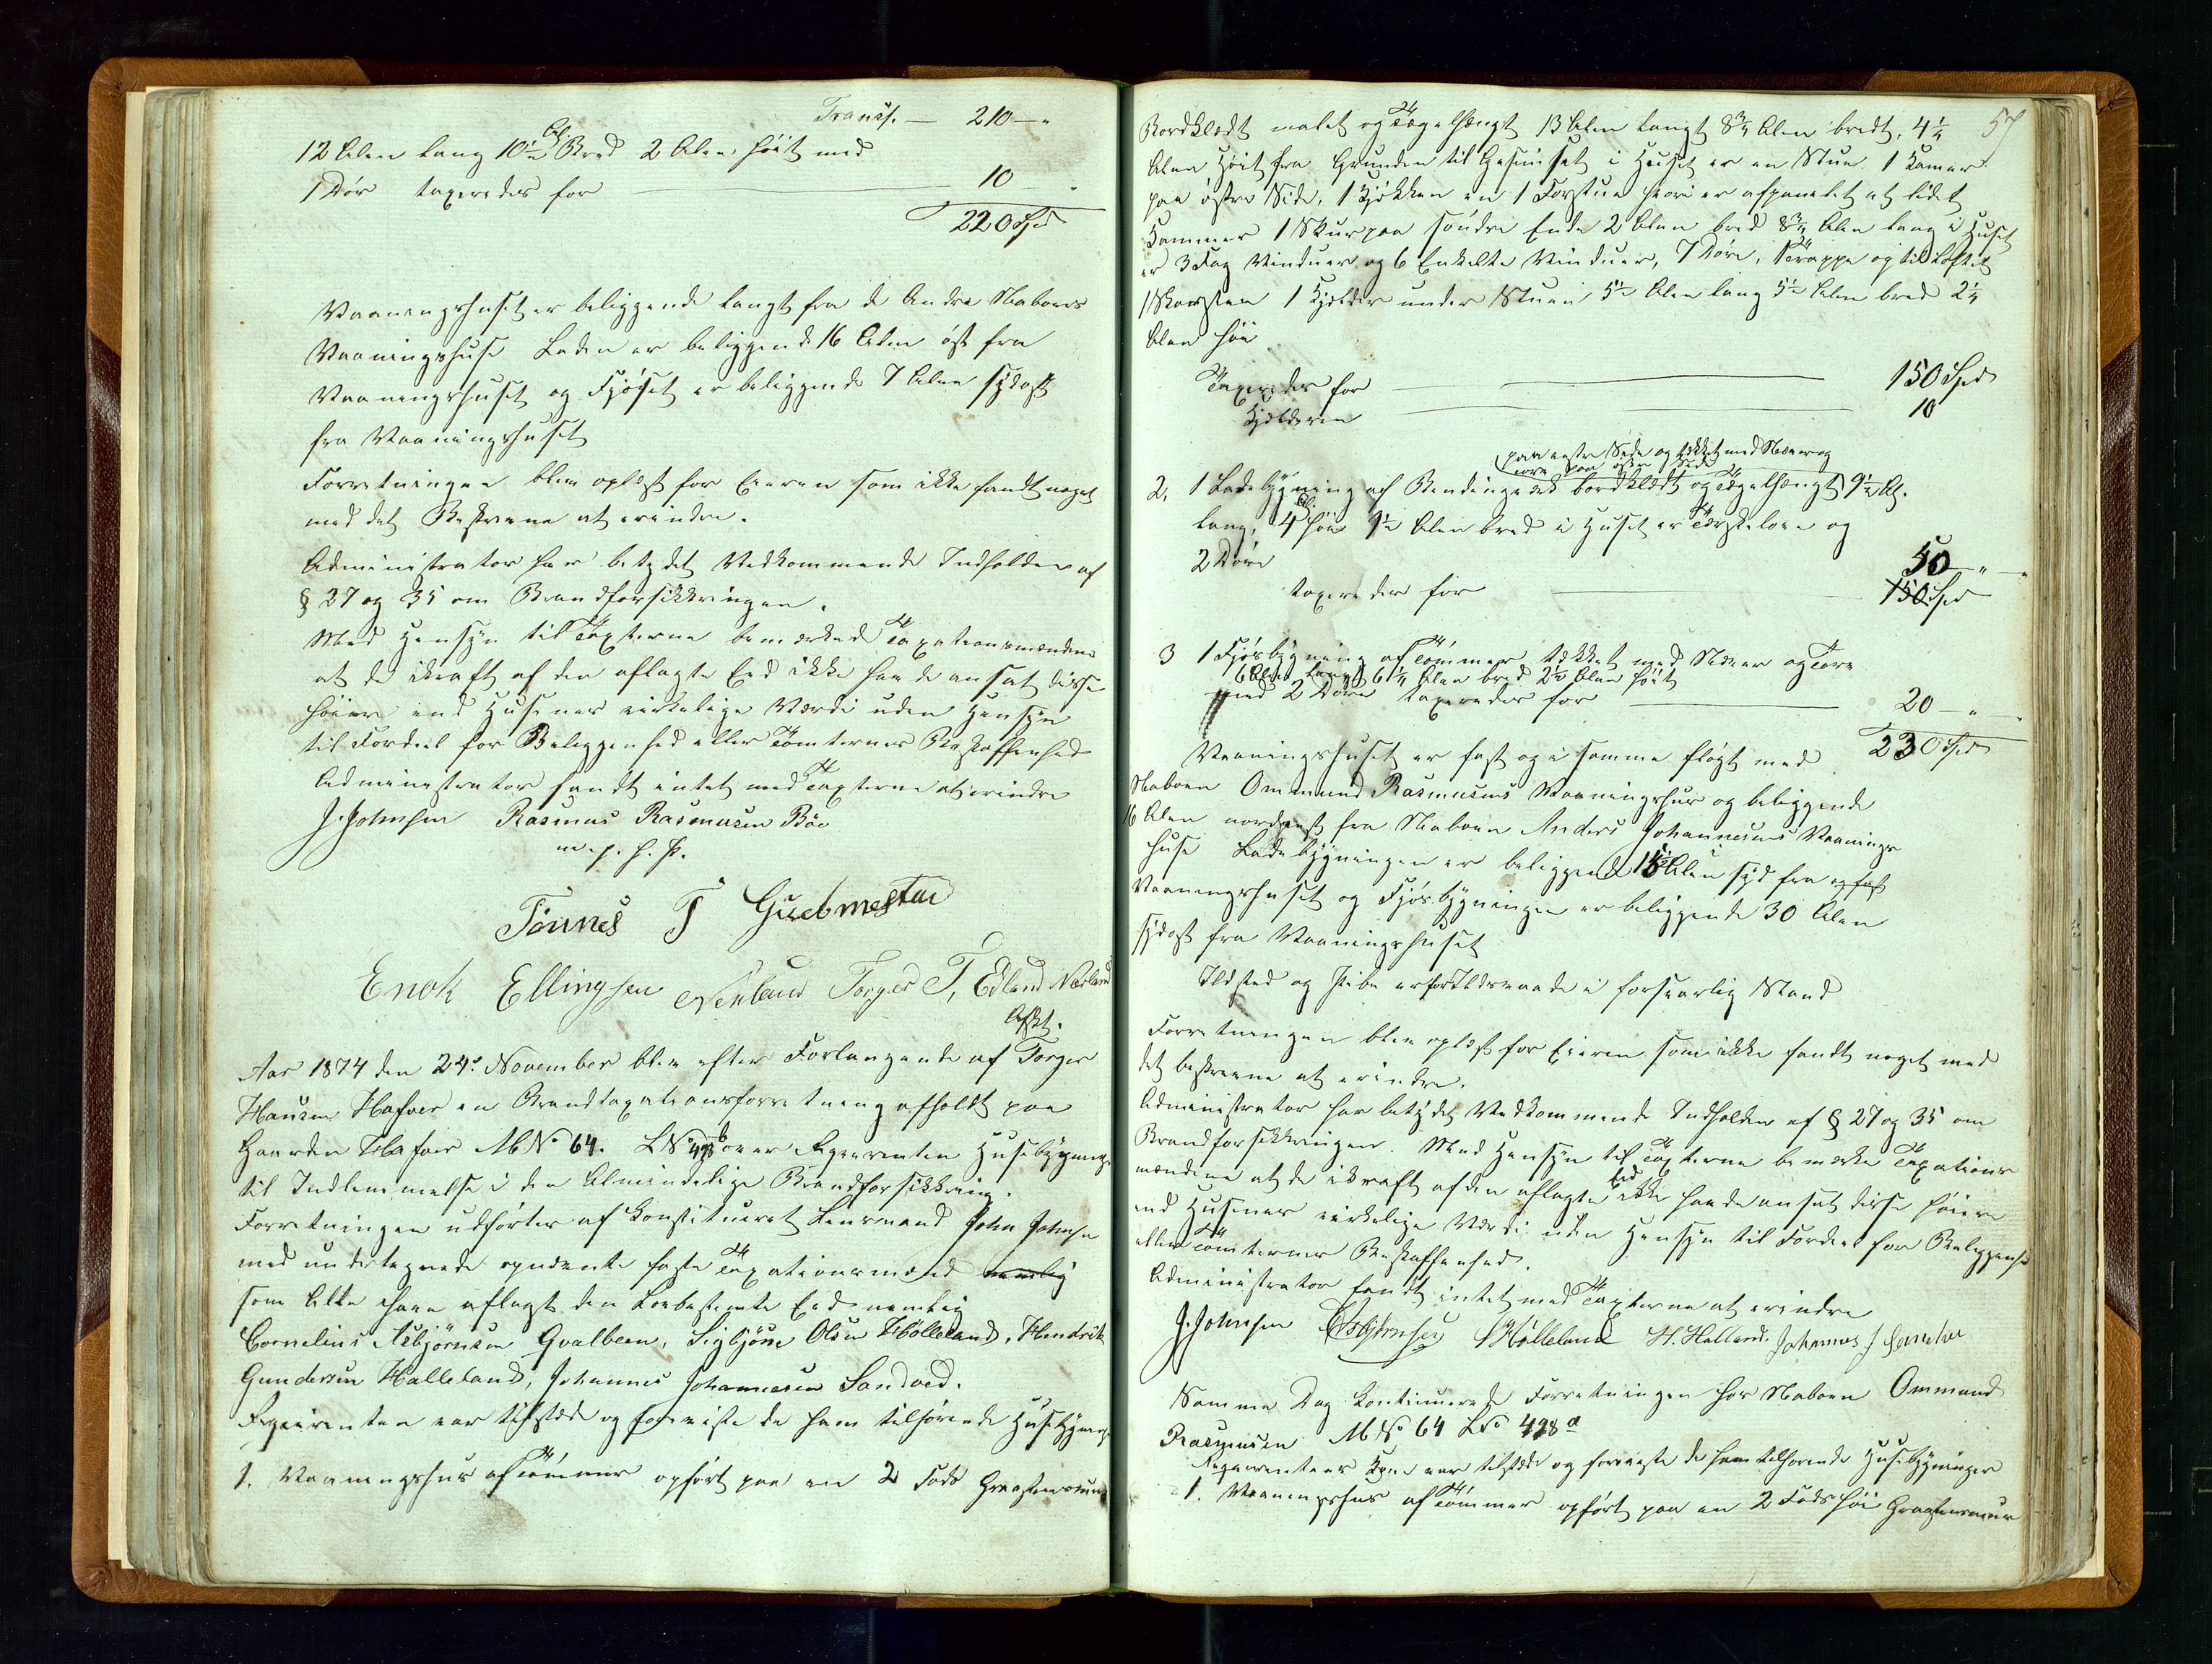 Transf. — 210 — "
12 Alen lang 10½ Al. Bred 2 Alen høit med
1 Dør taxeredes for — 10 — "
220 Spd
Vaaningshuset er beliggende langt fra de Andre Naboers
Vaaningshuse Laden er beliggende 16 Alen øst fra
Vaaningshuset og Fjøset er beliggende 7 Alen sydost
fra Vaaningshuset
Forretningen blev oplæst for Eieren som ikke fandt noget
med det Beskrevne at erindre.
Administrator har betydet Vedkommende Indholden af
§ 27 og 35 om Brandforsikkringen.
Med Hensyn til Taxterne bemærkede Taxationsmændene
at de ikraft af den aflagte Eed ikke havde ansat disse
høiere end Husenes virkelige Værdi uden Hensyn
til Fordeel for Beliggenhed eller Tomternes Beskaffenhed
Administrator fandt intet med Taxterne at erindre
J. Johnsen Rasmus Rasmusen Böe
m. p. h. P.
Tönnes T Gudmestad
Enok Ellingsen Nerland Torger T, Edland Nærland
Afskt.
Aar 1874 den 24de November blev efter Forlangende af Torger
Hansen Hafver en Brandtaxationsforretning afholdt paa
Gaarden Hafver M No 64. L No 498 b over Reqvirenten Husebygninger
til Indlemmelse i den Almindelige Brandforsikkring.
Forretningen udførtes af Konstitueret Lensmand John Johnsen
med undertegnede opnævnte faste Taxationsmænd nemlig
som Alle have aflagt den Lovbestemte Eed nemlig
Cornelius Asbjörnsen Qvalbeen, Sigbjörn Olsen Hölleland, Hendrik
Gundersen Halleland, Johannes Johannesen Sandved.
Reqvirenten var tilstæde og foreviste de ham tilhørende Husebygninger
1. Vaaningshus af Tömmer opført paa en 2 Fods Graastensmuur
57
Bordklædt malet og Tægelhængt 13 Alen langt 8¾ Alen bredt, 4¼
Alen Høit fra Grunden til Gesimset i Huset er en Stue 1 Kamer
paa østre Side, 1 Kjøkken en 1 Forstue hvori er afpanelet et lidet
Kammer 1 Skur paa søndre Ende 2 Alen bred 8¾ Alen lang i Huset
er 3 Fag Vinduer og 6 Enkelte Vinduer, 7 Døre, 1 Trappe og til Loftet
1 Skorsten 1 Kjelder under Stuen 5½ Alen lang 5½ Alen bred 2¼
Alen høi
Taxeredes for — 150 Spd
Kjelderen — 10
paa vestre Side og tækket med Næver og
torv paa østre Side
2. 1 Ladebygning af Bindingsverk bordklædt og Tægelhængt 9½ Al.
lang, 4 Al. høi 9½ Alen bred i Huset er Tærskelove og
2 Døre
taxeredes for — 50 — " —
150 Spd
3 1 Fjøsbygning af Tømmer tækket med Næver og Torv
6 Alen langt 6¼ Alen bred 2½ Alen høit
med 2 Døre taxeredes for — 20 — " —
230 Spd
Vaaningshuset er fast og i samme fløgt med
Naboen Ommund Rasmusens Vaaningshus og beliggende
16 Alen nordvest fra Naboen Anders Johannesens Vaanings
huse Ladebygningen er beliggende 18 Alen syd fra og fast
Vaaningshuset og Fjøsbygningen er beliggende 30 Alen
sydost fra Vaaningshuset
Ildsted og Pibe er for Ildsvaade i forsvarlig Stand
Forretningen blev oplæst for Eieren som ikke fandt noget med
det beskrevne at erindre.
Administrator har betydet Vedkommende Indholden af § 27 og 35 om
Brandforsikkringen. Med Hensyn til Taxterne bemærke Taxations
mændene at de ikraft af den aflagte Eed ikke havde ansat disse høiere
end Husenes virkelige Værdi uden Hensyn til Fordeel for Beliggenhed
eller Tomternes Beskaffenhed.
Administrator fandt intet med Taxterne at erindre
J. Johnsen CAsbjörnsen SHölleland H. Halland. Johannes J Sandve
Samme Dag Kontinuerede Forretningen hos Naboen Ommund
Rasmusen M No 64 L No 498 a
Reqvirentens Kone var tilstæde og foreviste de ham tilhørende Husebygninger
1. Vaaningshus af Tømmer opført paa en 2 Fods høi Graastensmuur